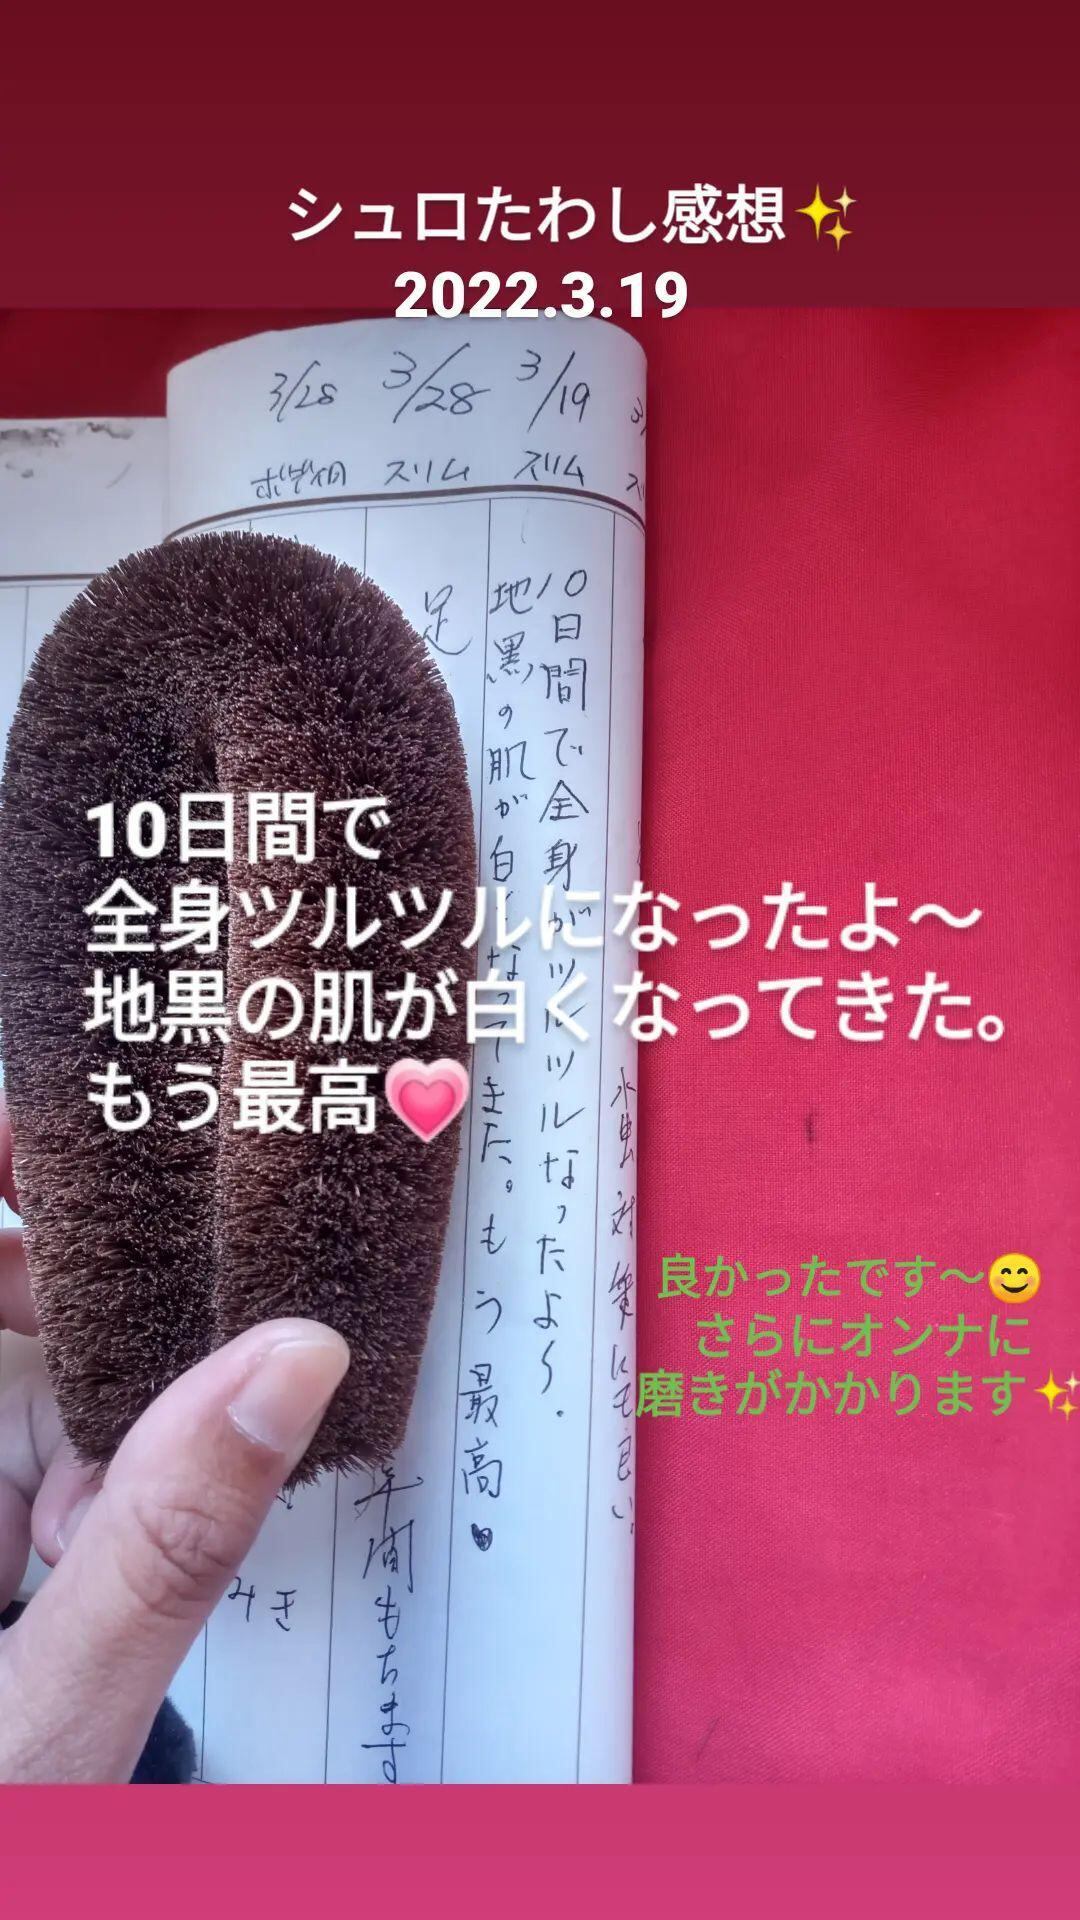 シュロたわし感想✨
2022.3.19
3/19
スリム
10日間で全身がツルツルなったよ〜.
地黒の肌が白くなってきた。もう最高♥
3/28
スリム
足
年間もちます
3/28
ボディ用
みき
水虫対策にも良い。
10日間で
全身ツルツルになったよ〜
地黒の肌が白くなってきた。
もう最高💗
良かったです〜😊
さらにオンナに
磨きがかかります✨